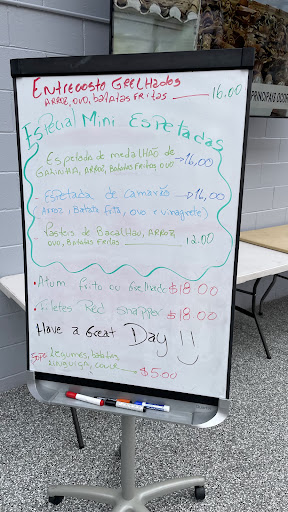 PRINCIPAIS OCOR
Entrecosto Grelhados
Arroz, ovo, batatas Fritas — 16.00
Especial Mini Espetadas
- Espetada de medalhão de → 16,00
Galinha, Arroz, Batatas Fritas, ovo
- Espetada de camarão → 16,00
Arroz, Batata Frita, ovo e vinagrete)
- Pasteis de Bacalhau, Arroz,
ovo, Batatas Fritas — 12.00
• Atum frito ou Grelhado $18.00
• Filetes Red snapper $18.00
Have a Great Day !!
Sopa: Legumes, batatas
Linguiça, couve — $5.00